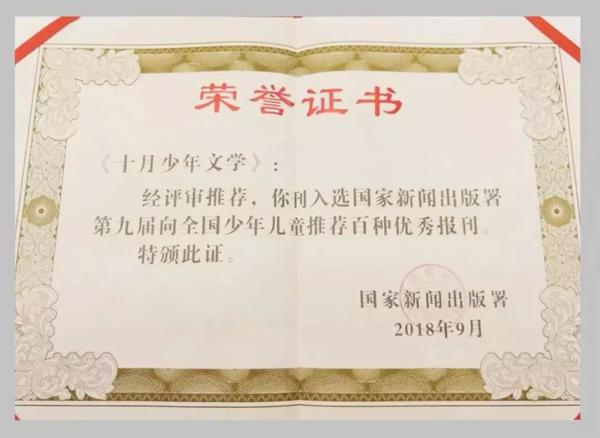 荣誉证书
《十月少年文学》:
经评审推荐,你刊入选国家新闻出版署
第九届向全国少年儿童推荐百种优秀报刊。
特颁此证。
国家新闻出版署
2018年9月